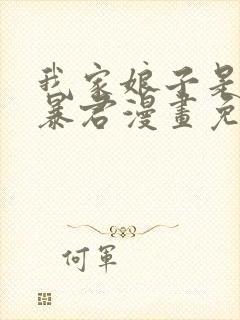 我家娘子是
暴君漫畫免
何軍